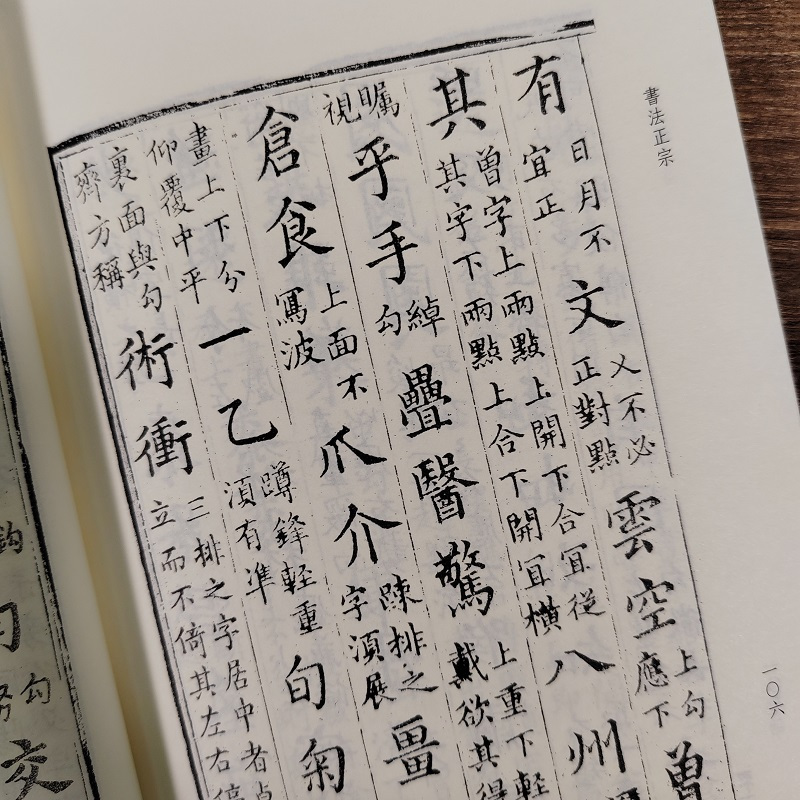 書法正宗
有日月不宜正文乂不必正對點雲空上勾應下曾
其曾字上兩點上開下合宜從其字下兩點上合下開宜橫八州
矚視乎手綽勾疊醫驚上重下輕戴欲其得
倉食上面不寫波爪介踈排之字須展畺
畫上下分仰覆中平一乙蹲鋒輕重須有準旬匊
裏面與勾齊方稱術衝三排之字居中者立而不倚其左右
一〇六
勾
交